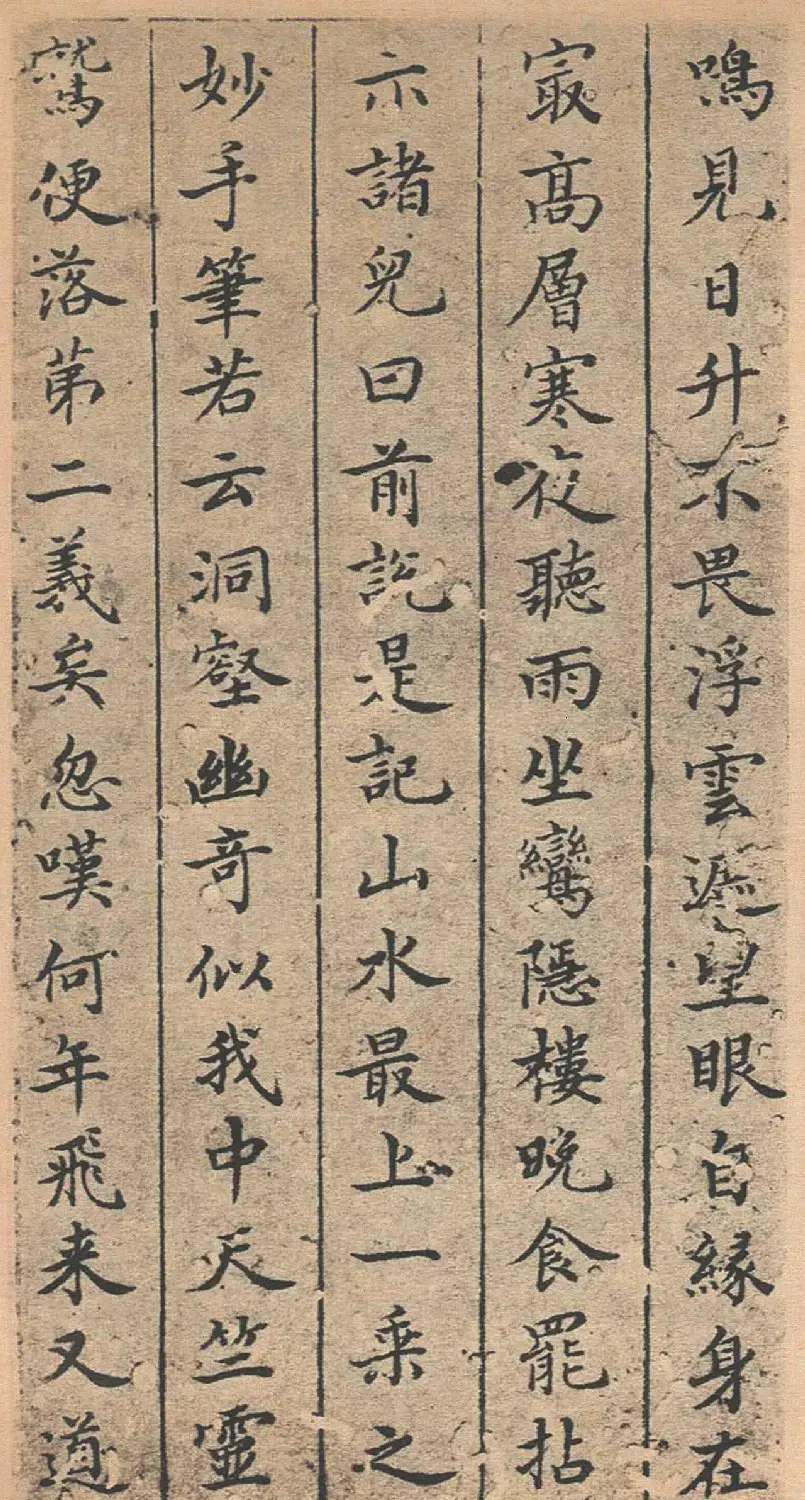 鳴見日升不畏浮雲遮望眼自緣身在
㝡髙層寒夜聽雨坐鸞隱樓晚食罷拈
示諸兒曰前說是記山水最上一乘之
妙手筆若云洞壑幽奇似我中天竺靈
鷲便落苐二義矣忽嘆何年飛来又道